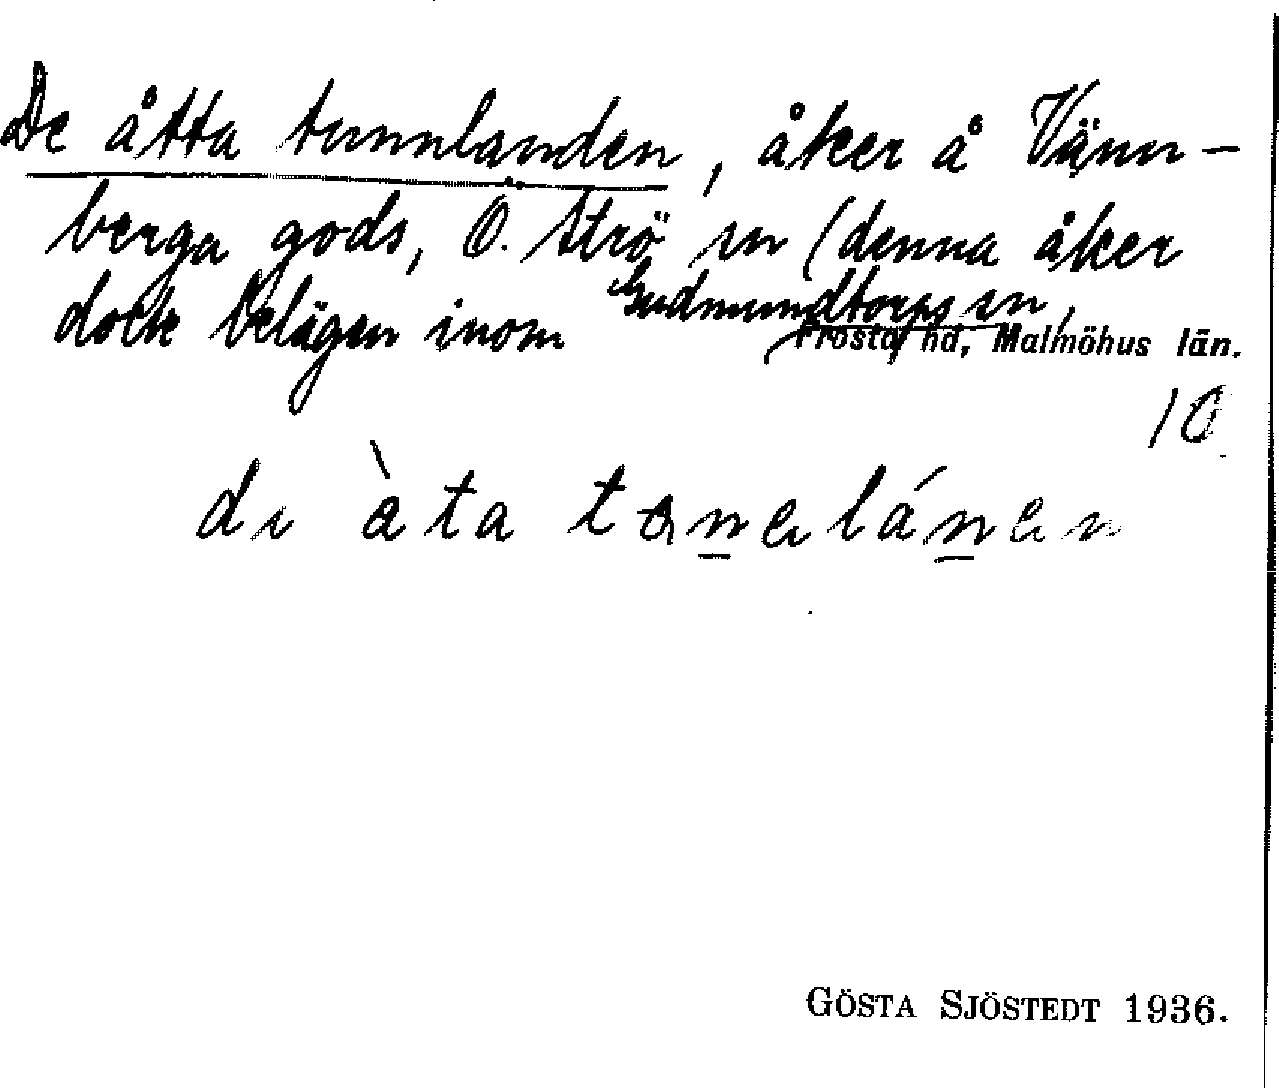 De åtta tunnlanden, åker å Vänn-
berga gods, Ö. Strö sn (denna åker
dock belägen inom Gudmundtorps sn,
Frosta hd, Malmöhus län.
10
di àta tɷnelánen
GÖSTA SJÖSTEDT 1936.